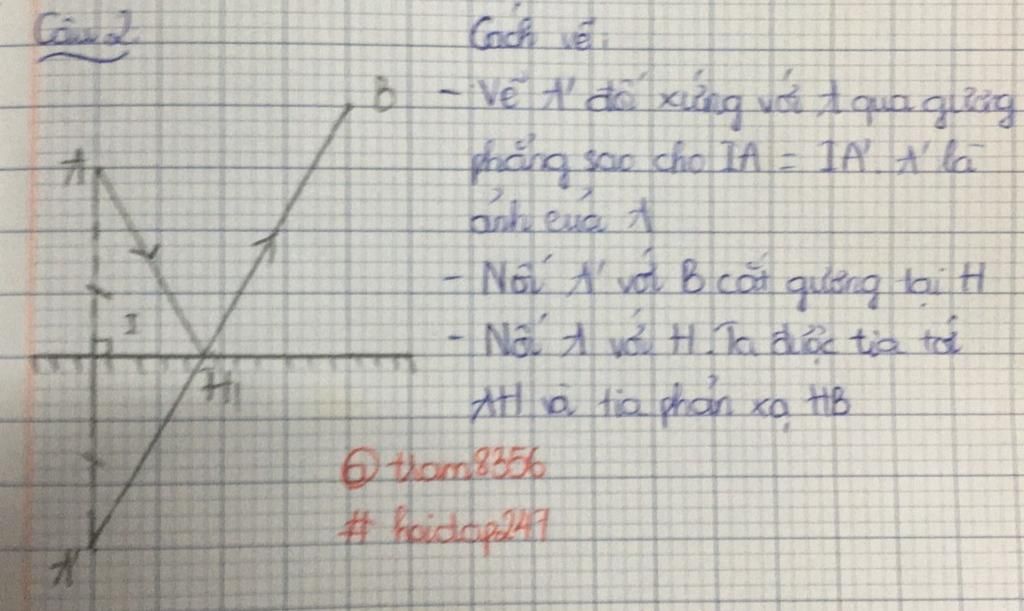 Câu 2
Cách vẽ:
- Vẽ A' đố xứng với A qua gương
phẳng sao cho IA = IA'. A' là
ảnh của A
- Nối A' với B cắt gương tại H
- Nối A với H. Ta được tia tới
AH và tia phản xạ HB
B
A
I
H
A'
@tham8356
# hoidap247